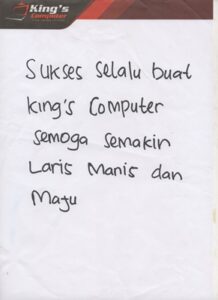 King's
Computer
Sukses selalu buat
King's Computer
semoga semakin
Laris Manis dan
Maju